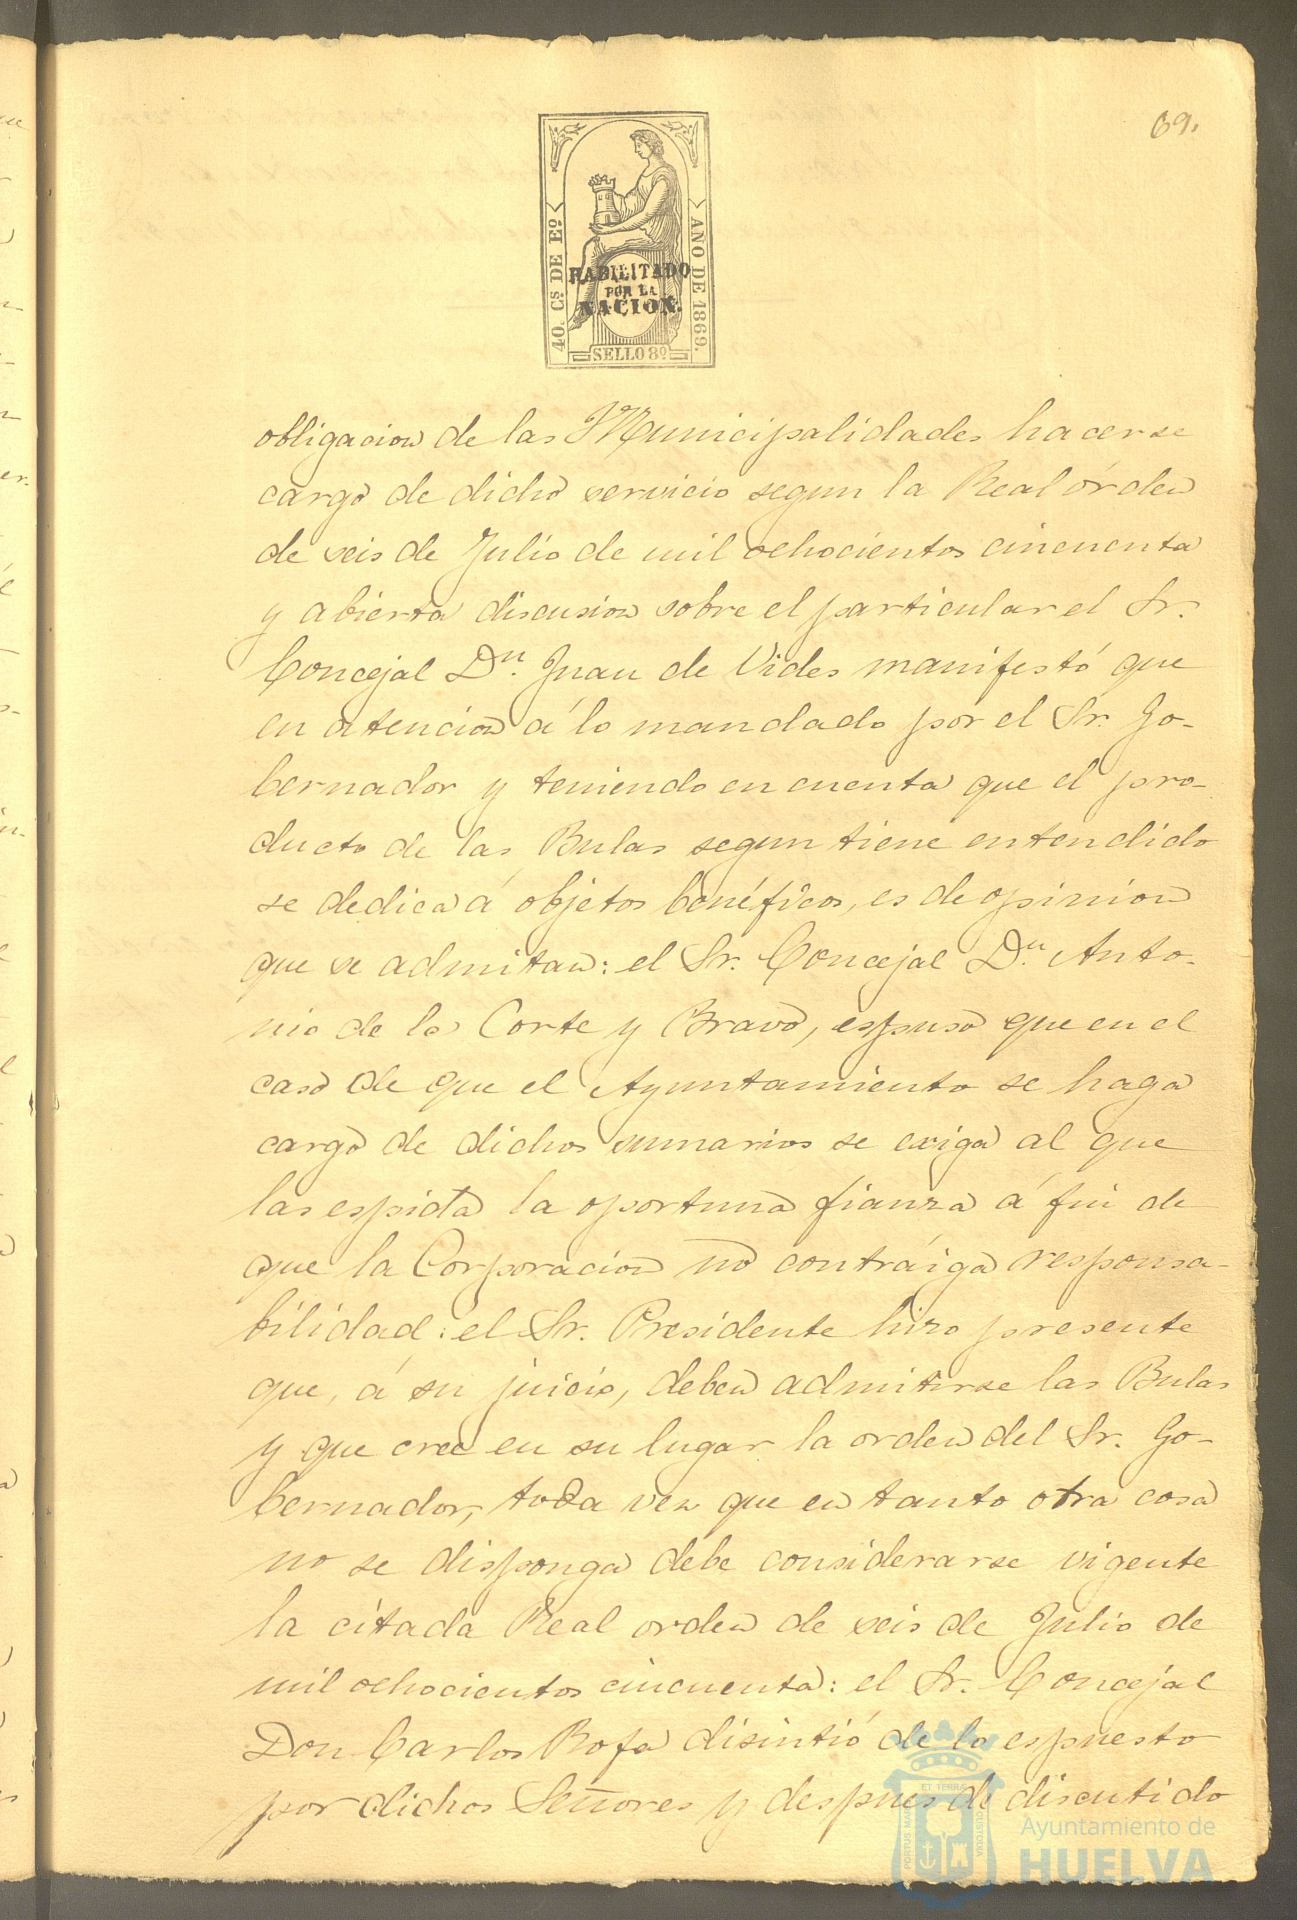 69.
40. Cs DE Eo.
AÑO DE 1869.
HABILITADO
POR LA
NACION.
SELLO 8º
obligacion de las Municipalidades hacerse
cargo de dicho servicio segun la Real órden
de seis de Julio de mil ochocientos cincuenta
y abierta discusion sobre el particular el Sr.
Concejal Dn. Juan de Vides manifestó que
en atencion á lo mandado por el Sr. Go-
bernador y teniendo en cuenta que el pro-
ducto de las Bulas segun tiene entendido
se dedica á objetos benéficos, es de opinion
que se admitan: el Sr. Concejal Dn. Anto-
nio de la Corte y Bravo, espuso que en el
caso de que el Ayuntamiento se haga
cargo de dichos sumarios se exiga al que
las espida la oportuna fianza á fin de
que la Corporacion no contráiga responsa-
bilidad: el Sr. Presidente hizo presente
que, á su juicio, deben admitirse las Bulas
y que cree en su lugar la orden del Sr. Go-
bernador, toda vez que en tanto otra cosa
no se disponga debe considerarse vigente
la citada Real orden de seis de Julio de
mil ochocientos cincuenta: el Sr. Concejal
Don Carlos Rofa disintió de lo espuesto
por dichos Señores y despues de discutido
PORTUS MARIS ET TERRAE CUSTODIA
Ayuntamiento de
HUELVA